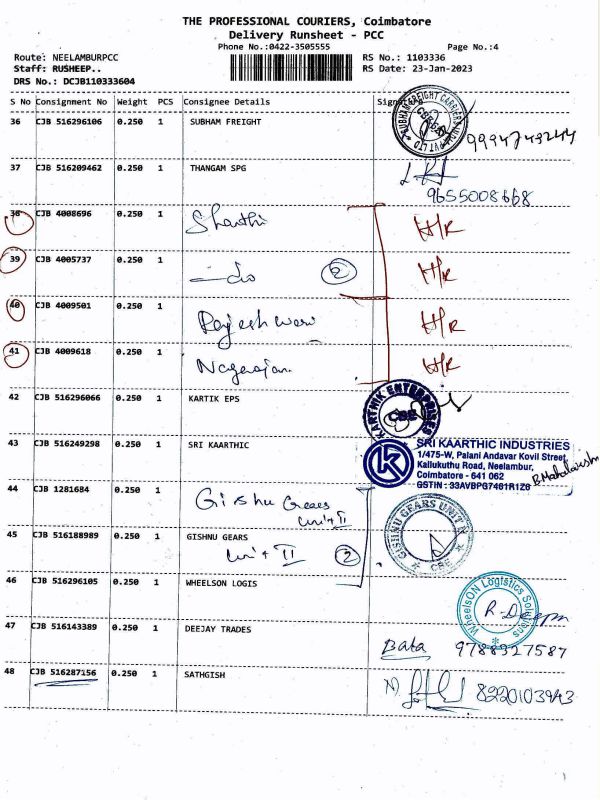 THE PROFESSIONAL COURIERS, Coimbatore
Delivery Runsheet - PCC
Phone No.:0422-3505555 Page No.:4
Route: NEELAMBURPCC RS No.: 1103336
Staff: RUSHEEP.. RS Date: 23-Jan-2023
DRS No.: DCJB110333604
S No Consignment No Weight PCS Consignee Details
36 CJB 516296106 0.250 1 SUBHAM FREIGHT
SUBHAM FREIGHT CARRIERS
9994743244
37 CJB 516209462 0.250 1 THANGAM SPG
9655008668
38 CJB 4008696 0.250 1 Shanthi H/R
39 CJB 4005737 0.250 1 do 2 H/R
40 CJB 4009501 0.250 1 Rajeshwari H/R
41 CJB 4009618 0.250 1 Nagarajan H/R
42 CJB 516296066 0.250 1 KARTIK EPS
KARTHIK ENTERPRISES
CBE
43 CJB 516249298 0.250 1 SRI KAARTHIC
K
SRI KAARTHIC INDUSTRIES
1/475-W, Palani Andavar Kovil Street,
Kallukuthu Road, Neelambur,
Coimbatore - 641 062
GSTIN : 33AVBPG7461R1Z6
44 CJB 1281684 0.250 1 Gishnu Gears
unit II
45 CJB 516188989 0.250 1 GISHNU GEARS
unit II 2
GISHNU GEARS UNIT II
CBE
46 CJB 516296105 0.250 1 WHEELSON LOGIS
WheelsON Logistics Solutions
R. Deepa
47 CJB 516143389 0.250 1 DEEJAY TRADES
Bala 9788327587
48 CJB 516287156 0.250 1 SATHGISH
8220103943